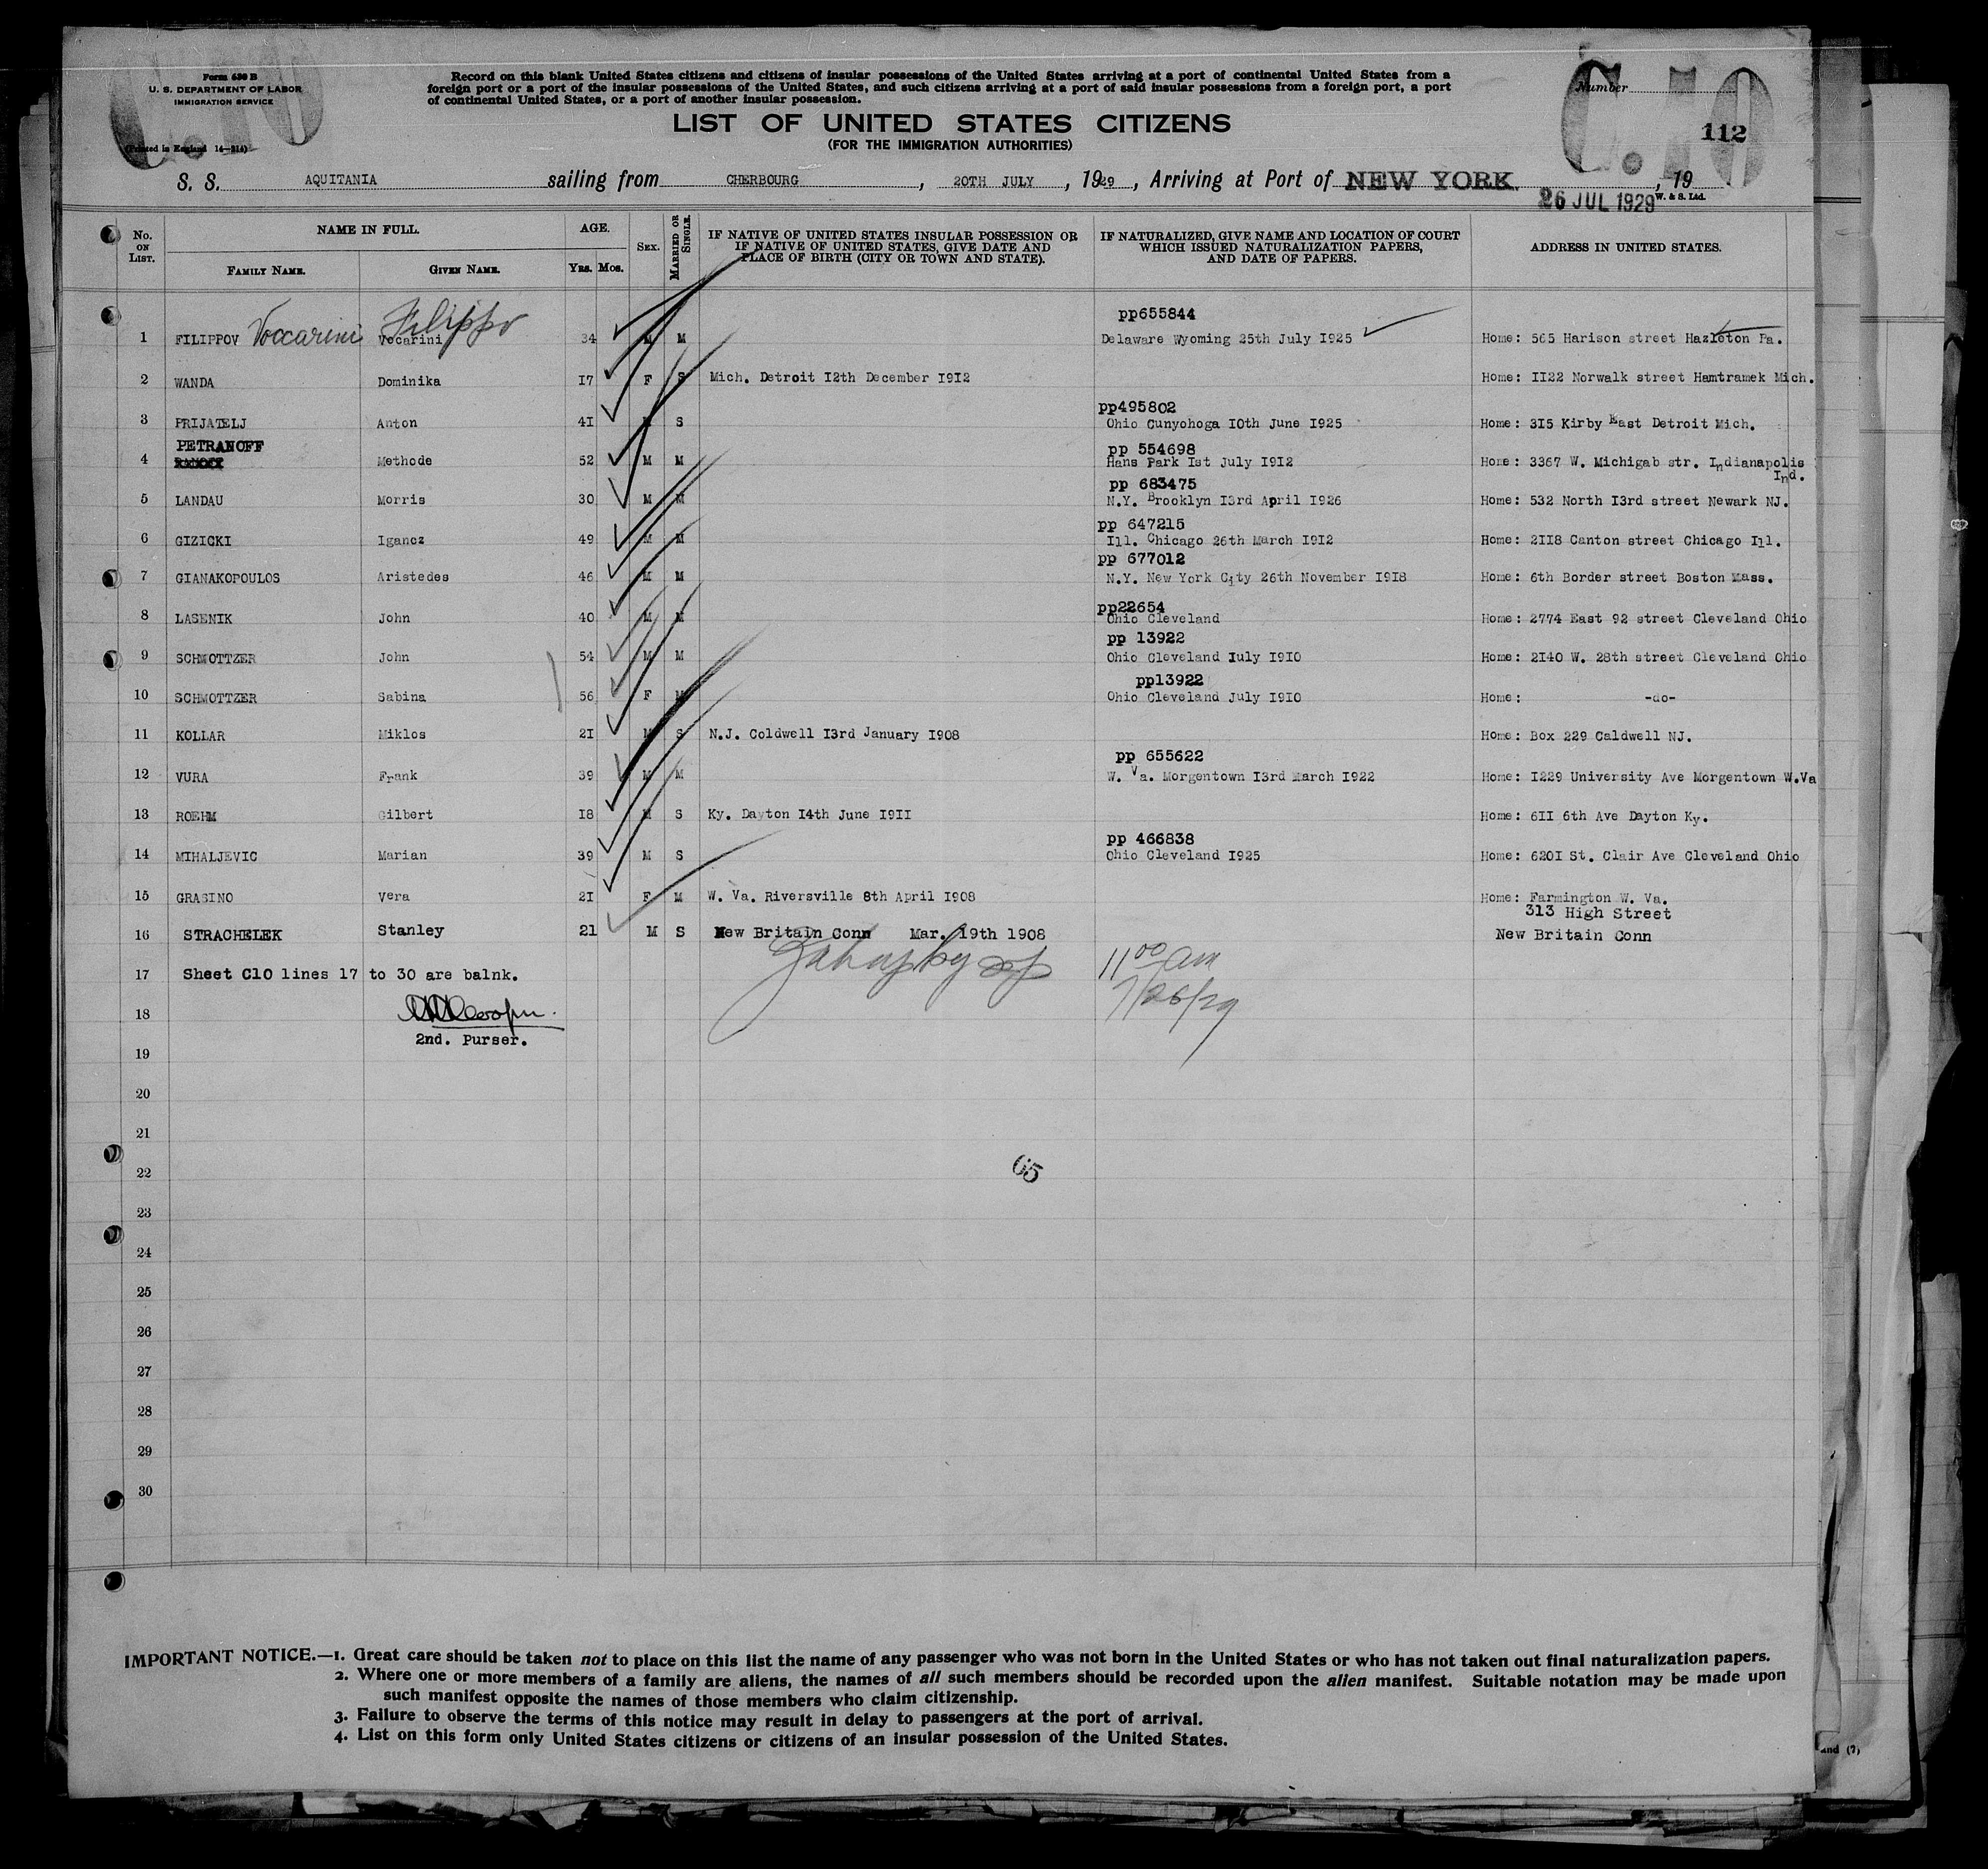 Form 630 B
U. S. DEPARTMENT OF LABOR
IMMIGRATION SERVICE
(Printed in England 14—214)
Record on this blank United States citizens and citizens of insular possessions of the United States arriving at a port of continental United States from a
foreign port or a port of the insular possessions of the United States, and such citizens arriving at a port of said insular possessions from a foreign port, a port
of continental United States, or a port of another insular possession.
LIST OF UNITED STATES CITIZENS
(FOR THE IMMIGRATION AUTHORITIES)
Number
C.10
112
S. S. AQUITANIA sailing from CHERBOURG, 20TH JULY, 1929, Arriving at Port of NEW YORK, 19
26 JUL 1929 W. & S. Ltd.
No. ON LIST. NAME IN FULL. FAMILY NAME. GIVEN NAME. AGE. YRS. MOS. SEX. MARRIED OR SINGLE. IF NATIVE OF UNITED STATES INSULAR POSSESSION OR IF NATIVE OF UNITED STATES, GIVE DATE AND PLACE OF BIRTH (CITY OR TOWN AND STATE). IF NATURALIZED, GIVE NAME AND LOCATION OF COURT WHICH ISSUED NATURALIZATION PAPERS, AND DATE OF PAPERS. ADDRESS IN UNITED STATES.
pp655844
1 FILIPPOV Voccarini Vocarini Filippo 34 M M Delaware Wyoming 25th July I925 Home: 565 Harison street Hazleton Pa.
2 WANDA Dominika I7 F S Mich. Detroit I2th December I9I2 Home: II22 Norwalk street Hamtramek Mich.
pp495802
3 PRIJATELJ Anton 4I M S Ohio Cunyohoga IOth June I925 Home: 3I5 Kirby East Detroit Mich.
PETRANOFF pp 554698
4 Methode 52 M M Hans Park Ist July I9I2 Home: 3367 W. Michigab str. Indianapolis Ind.
pp 683475
5 LANDAU Morris 30 M M N.Y. Brooklyn I3rd April I926 Home: 532 North I3rd street Newark NJ.
pp 647215
6 GIZICKI Igancz 49 M M Ill. Chicago 26th March I9I2 Home: 2II8 Canton street Chicago Ill.
pp 677012
7 GIANAKOPOULOS Aristedes 46 M M N.Y. New York City 26th November I9I8 Home: 6th Border street Boston Mass.
pp22654
8 LASENIK John 40 M M Ohio Cleveland Home: 2774 East 92 street Cleveland Ohio
pp 13922
9 SCHMOTTZER John 54 M M Ohio Cleveland July I9IO Home: 2I40 W. 28th street Cleveland Ohio
pp13922
10 SCHMOTTZER Sabina 56 F M Ohio Cleveland July I9IO Home: -do-
11 KOLLAR Miklos 2I M S N.J. Coldwell I3rd January I908 Home: Box 229 Caldwell NJ.
pp 655622
12 VURA Frank 39 M M W. Va. Morgentown I3rd March I922 Home: I229 University Ave Morgentown W.Va
13 ROEHM Gilbert I8 M S Ky. Dayton I4th June I9II Home: 6II 6th Ave Dayton Ky.
pp 466838
14 MIHALJEVIC Marian 39 M S Ohio Cleveland I925 Home: 620I St. Clair Ave Cleveland Ohio
15 GRASINO Vera 2I F M W. Va. Riversville 8th April I908 Home: Farmington W. Va.
313 High Street
16 STRACHELEK Stanley 21 M S New Britain Conn Mar. 19th 1908 New Britain Conn
11 00 am
17 Sheet C10 lines 17 to 30 are balnk.
7/26/29
18
2nd. Purser.
19
20
21
22
65
23
24
25
26
27
28
29
30
IMPORTANT NOTICE.—1. Great care should be taken not to place on this list the name of any passenger who was not born in the United States or who has not taken out final naturalization papers.
2. Where one or more members of a family are aliens, the names of all such members should be recorded upon the alien manifest. Suitable notation may be made upon
such manifest opposite the names of those members who claim citizenship.
3. Failure to observe the terms of this notice may result in delay to passengers at the port of arrival.
4. List on this form only United States citizens or citizens of an insular possession of the United States.
and (7)